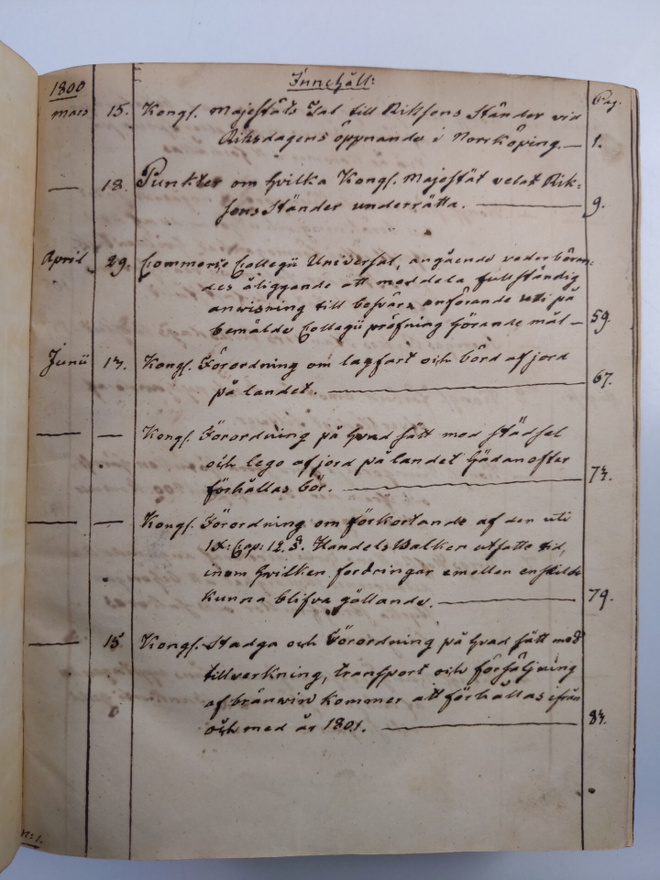 Innehåll:
1800 Pag.
Mars 15. Kongl. Majestäts Tal till Riksens Ständer vid
Riksdagens öppnande i Norrköping. — 1.
— 18. Punkter om hvilka Kongl. Majestät velat Rik-
sens Ständer underrätta. — 9.
April 29. Commerse Collegii Universal, angående vederböran-
des åliggande att meddela fullständig
anvisning till besvärs anförande uti på
bemälde Collegii pröfning hörande mål — 59.
Junii 13. Kongl. Förordning om lagfart och börd af jord
på landet. — 67.
— — Kongl. Förordning på hvad sätt med städsel
och lego af jord på landet hädanefter
förhållas bör. — 73.
— — Kongl. Förordning om förkortande af den uti
IX: Cap: 12. §. Handels Balken utsatte tid,
inom hvilken fordringar emellan enskilde
kunna blifva gällande. — 79.
— 15 Kongl. Stadga och Förordning på hvad sätt med
tillverkning, transport och försäljning
af bränvin kommer att förhållas ifrån
och med år 1801. — 83.
N:1.